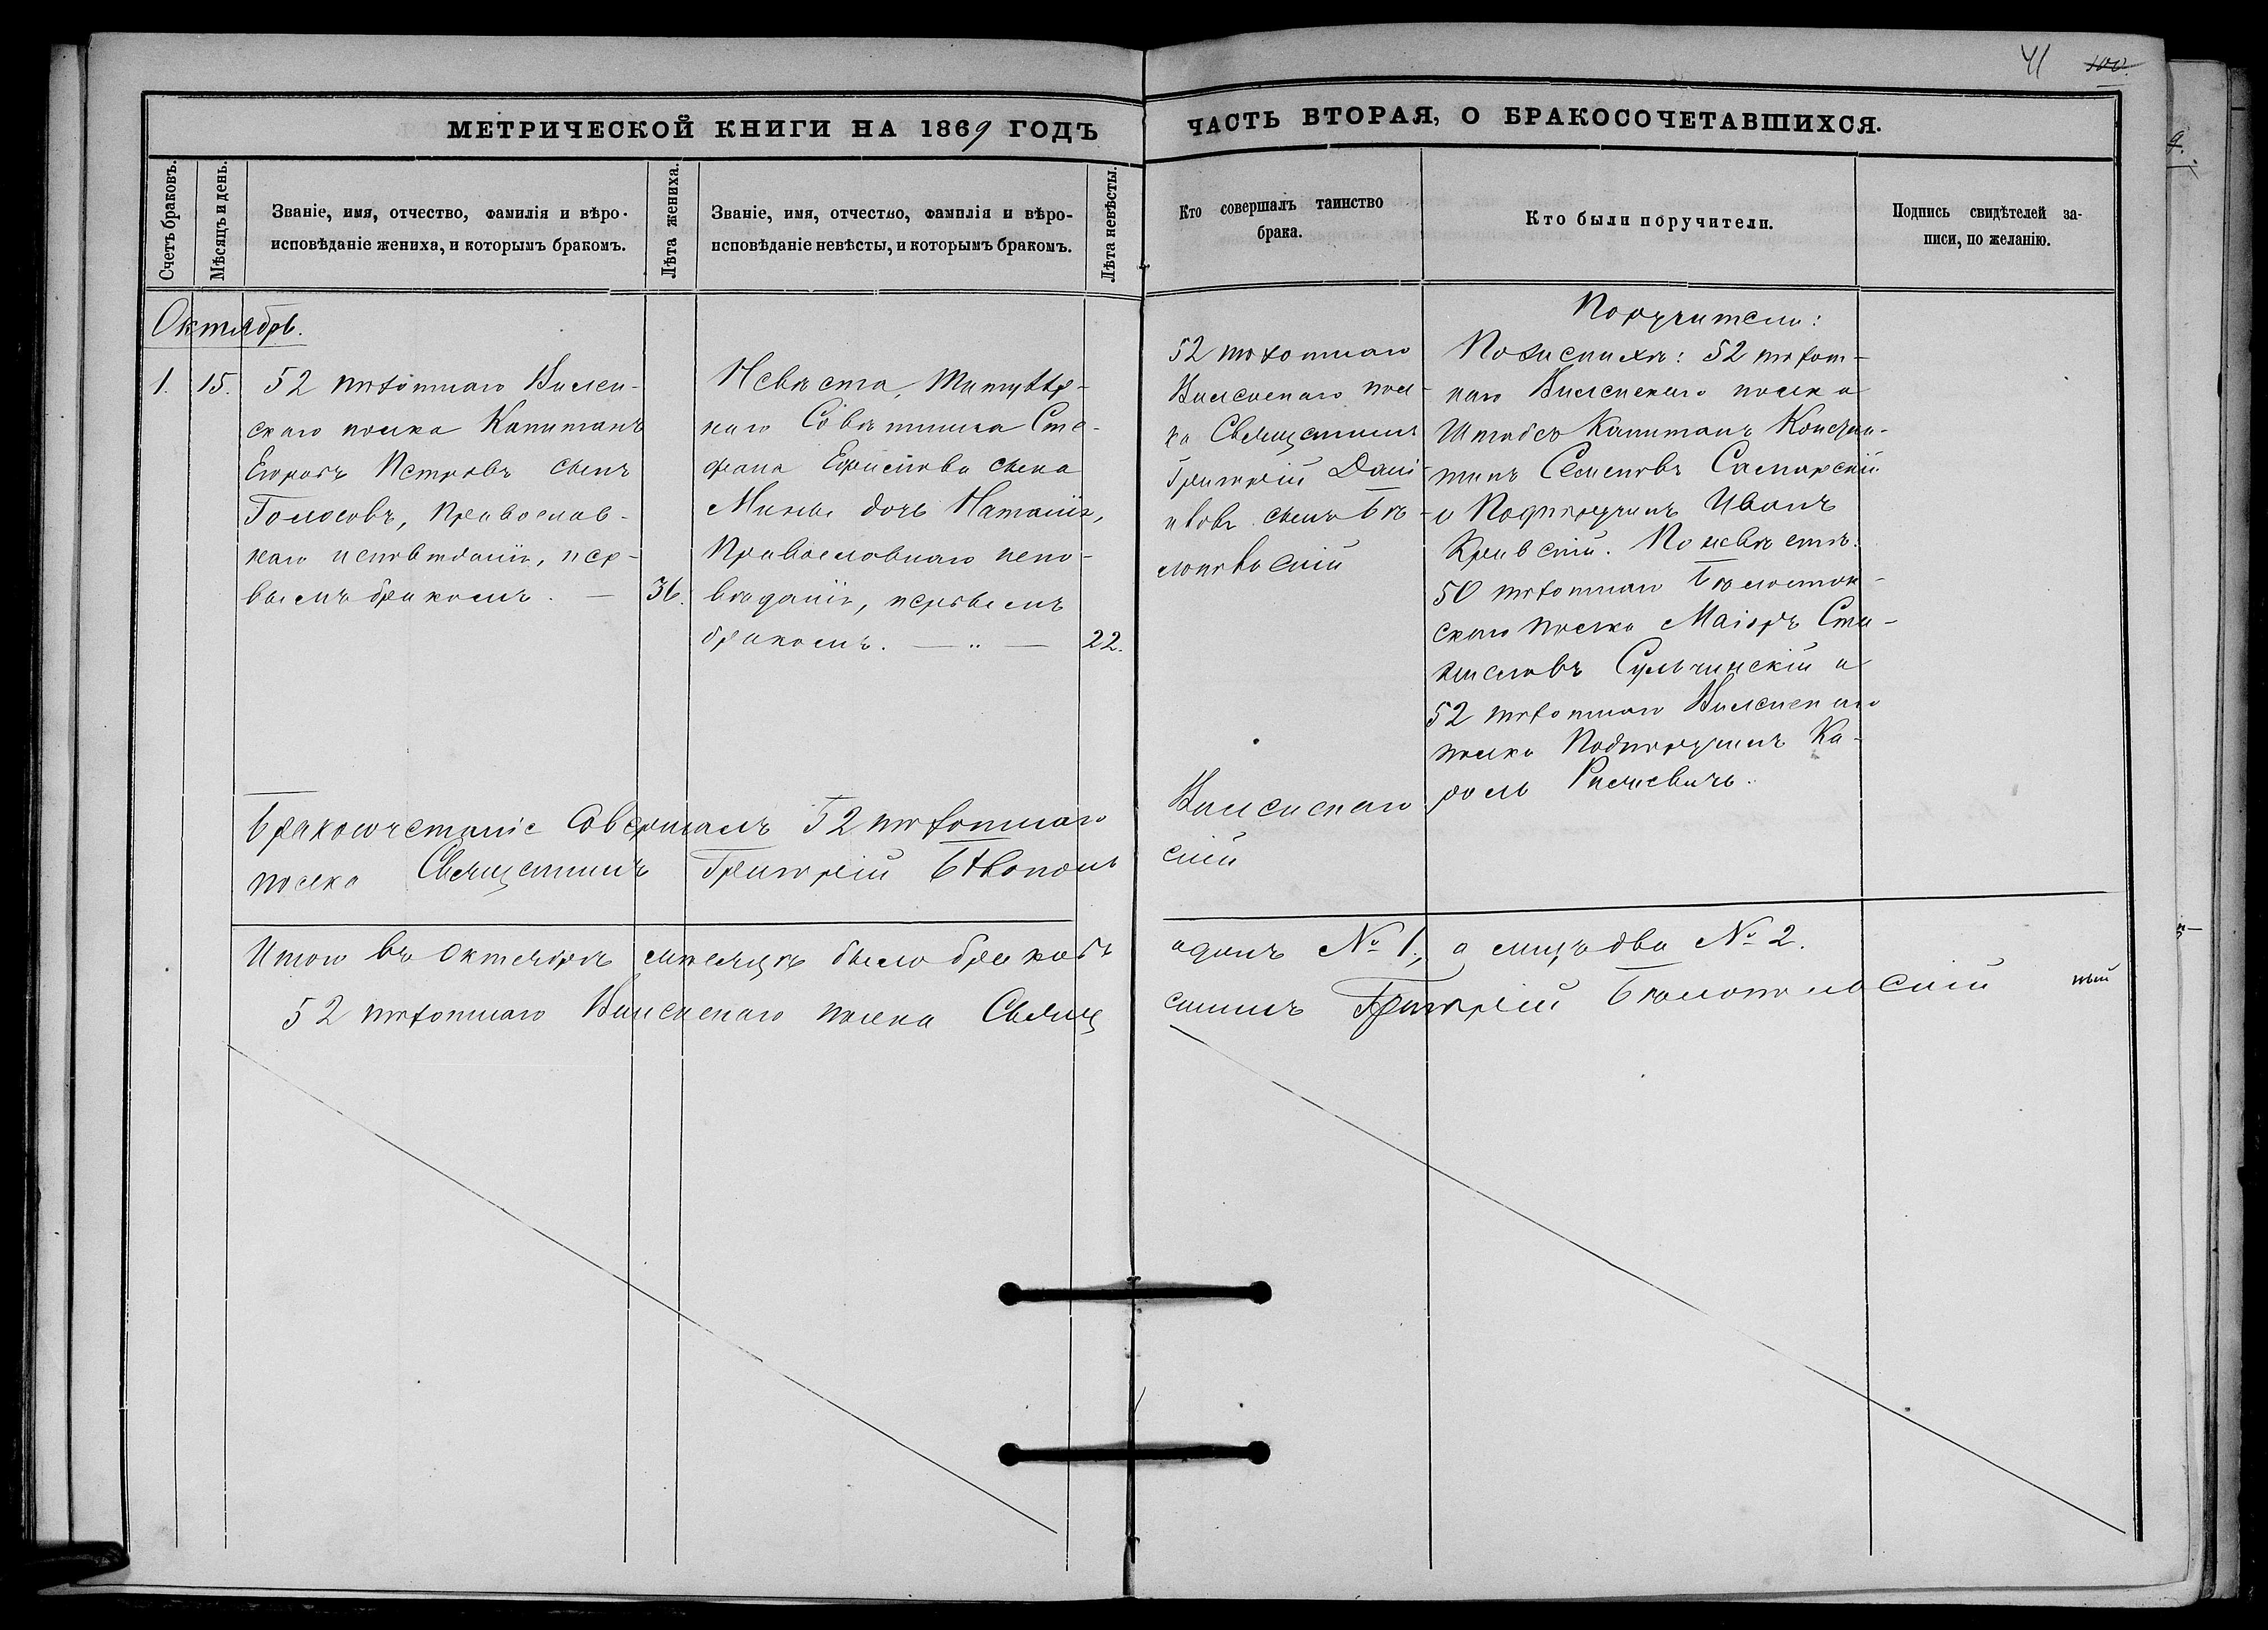 41 100.
МЕТРИЧЕСКОЙ КНИГИ НА 1869 ГОДЪ
ЧАСТЬ ВТОРАЯ, О БРАКОСОЧЕТАВШИХСЯ.
Счетъ браковъ.
Мѣсяцъ и день.
Званіе, имя, отчество, фамилія и вѣро-
исповѣданіе жениха, и которымъ бракомъ.
Лѣта жениха.
Званіе, имя, отчество, фамилія и вѣро-
исповѣданіе невѣсты, и которымъ бракомъ.
Лѣта невѣсты.
Кто совершалъ таинство
брака.
Кто были поручители.
Подпись свидѣтелей за-
писи, по желанію.
Октябрь.
1. 15.
52 пѣхотнаго Вилен-
скаго полка Капитанъ
Егоръ Петровъ сынъ
Голосовъ, Православ-
наго исповѣданія, пер-
вымъ бракомъ. — 36.
Невѣста, Титуляр-
наго Совѣтника Сте-
фана сына
дочь Наталія,
Православнаго испо-
вѣданія, первымъ
бракомъ. — " — 22.
52 пѣхотнаго
Виленскаго пол-
ка Священникъ
Григорій Дані-
иловъ сынъ Бѣ-
Поручители:
По женихѣ: 52 пѣхот-
наго Виленскаго полка
Штабсъ Капитанъ Констан-
тинъ Семеновъ Самарскій
и Подпоручикъ Иванъ
Кривскій. По невѣстѣ:
50 пѣхотнаго Бѣлосток-
скаго полка Маіоръ Ста-
ниславъ Сульчинскій и
52 пѣхотнаго Виленскаго
полка Подпоручикъ Ка-
роль
Бракосочетаніе совершалъ 52 пѣхотнаго Виленскаго
полка Священникъ Григорій
Итого въ Октябрѣ мѣсяцѣ было браковъ одинъ № 1, а лицъ два № 2.
52 пѣхотнаго Виленскаго полка Священникъ Григорій